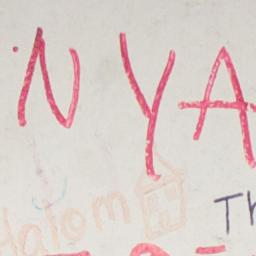 NYA
Halom
Th